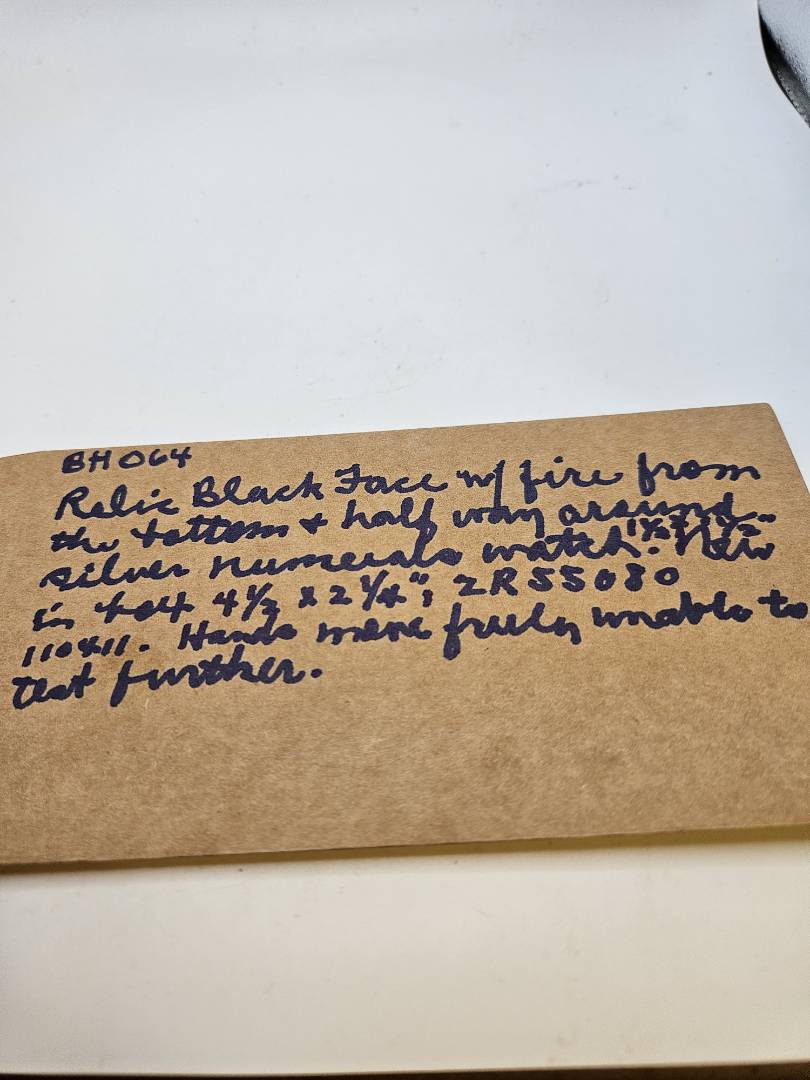 BH064
Relic Black Face w/ fire from
the bottom & half way around
silver numerals watch. 1½ x 1½" New
in 4½ x 2¼"; ZR55080
110411. Hands move freely unable to
test further.